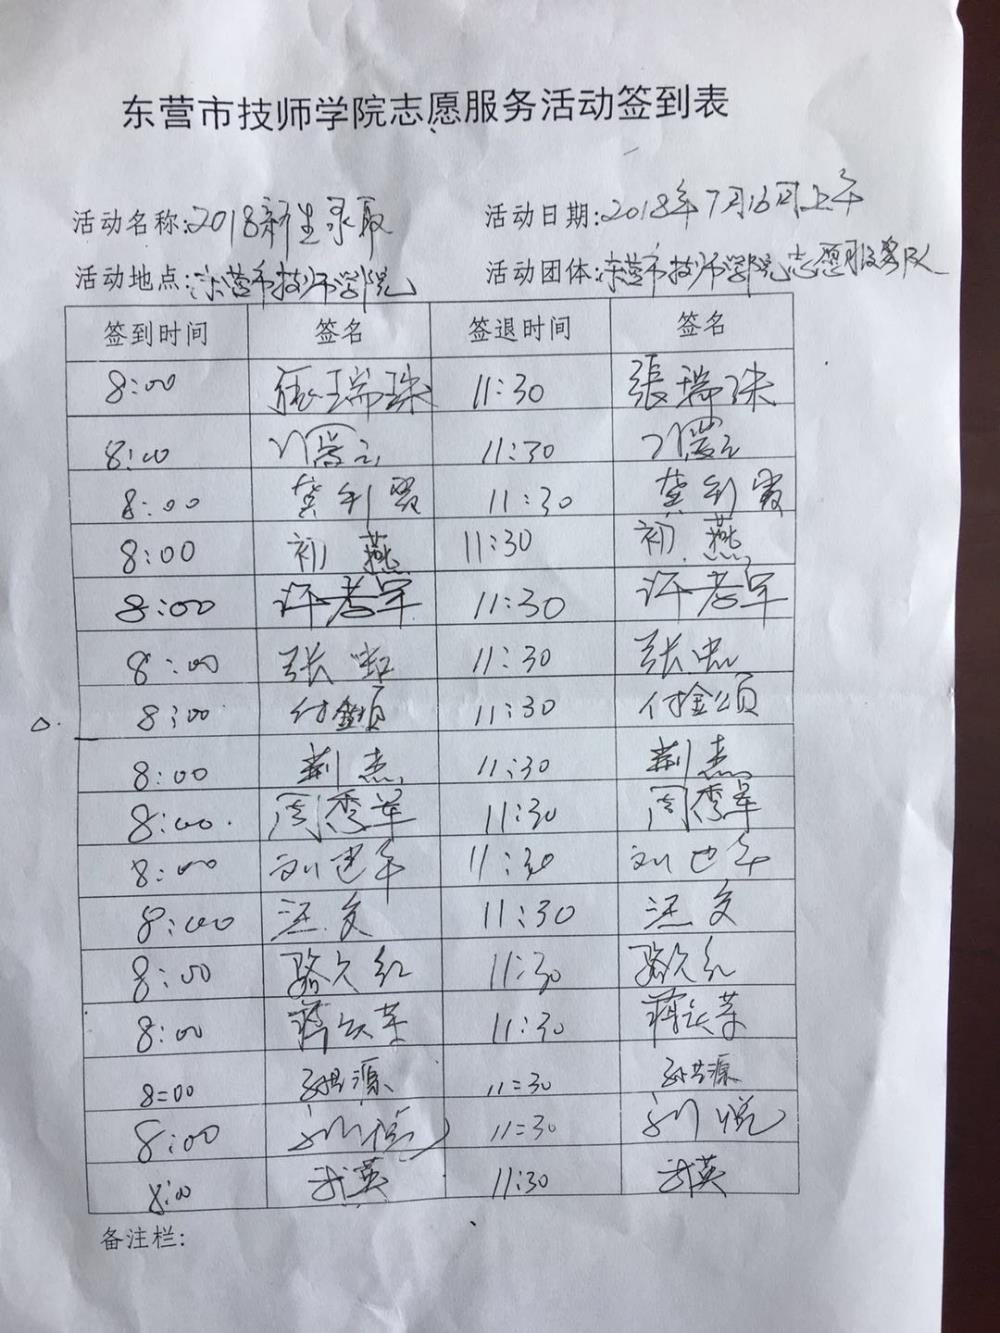 东营市技师学院志愿服务活动签到表
活动名称:2018新生录取 活动日期:2018年7月16日上午
活动地点:东营市技师学院 活动团体:东营市技师学院志愿服务队
签到时间 签名 签退时间 签名
8:00 张瑞珠 11:30 張瑞珠
8:00 11:30
8:00 龚利霞 11:30 龚利霞
8:00 初燕 11:30 初燕
8:00 许孝军 11:30 许孝军
8:00 张忠 11:30 张忠
8:00 付金颂 11:30 付金颂
8:00 荆杰 11:30 荆杰
8:00 周秀翠 11:30 周秀翠
8:00 刘建军 11:30 刘建军
8:00 汪文 11:30 汪文
8:00 骆久红 11:30 骆久红
8:00 蒋 11:30 蒋
8:00 源 11:30 源
8:00 刘悦 11:30 刘悦
8:00 武英 11:30 武英
备注栏: